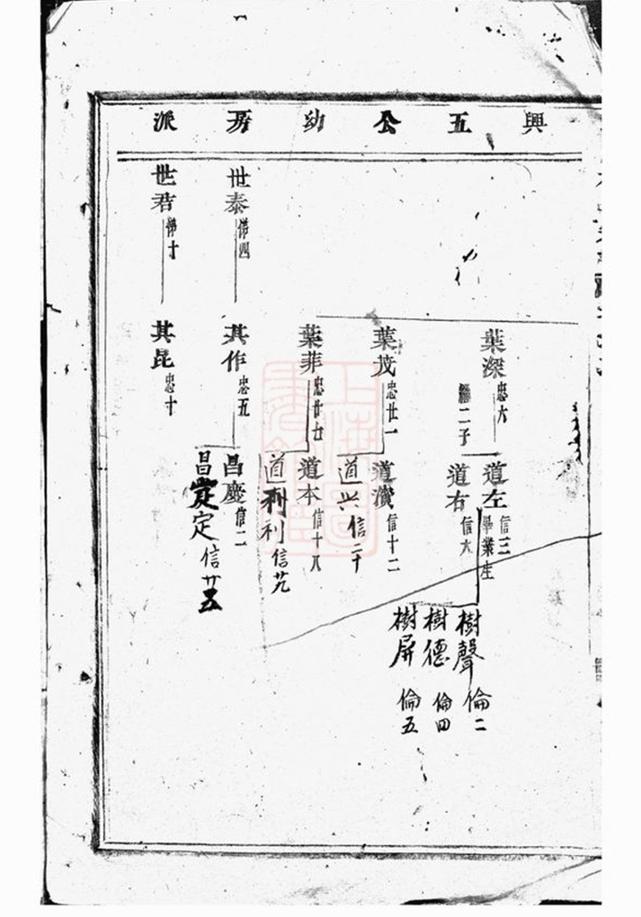 興五公幼房派
葉深 忠六
繼二子
道左 信三 畢業生
道右 信六
樹聲 倫二
樹德 倫四
樹屏 倫五
葉茂 忠廿一
道濱 信十二
道兴 信二十
葉菲 忠廿七
道本 信十八
道利 利 信廿九
世泰 傳四
其作 忠五
昌慶 信二
昌定 定 信廿五
世君 傳十
其昆 忠十